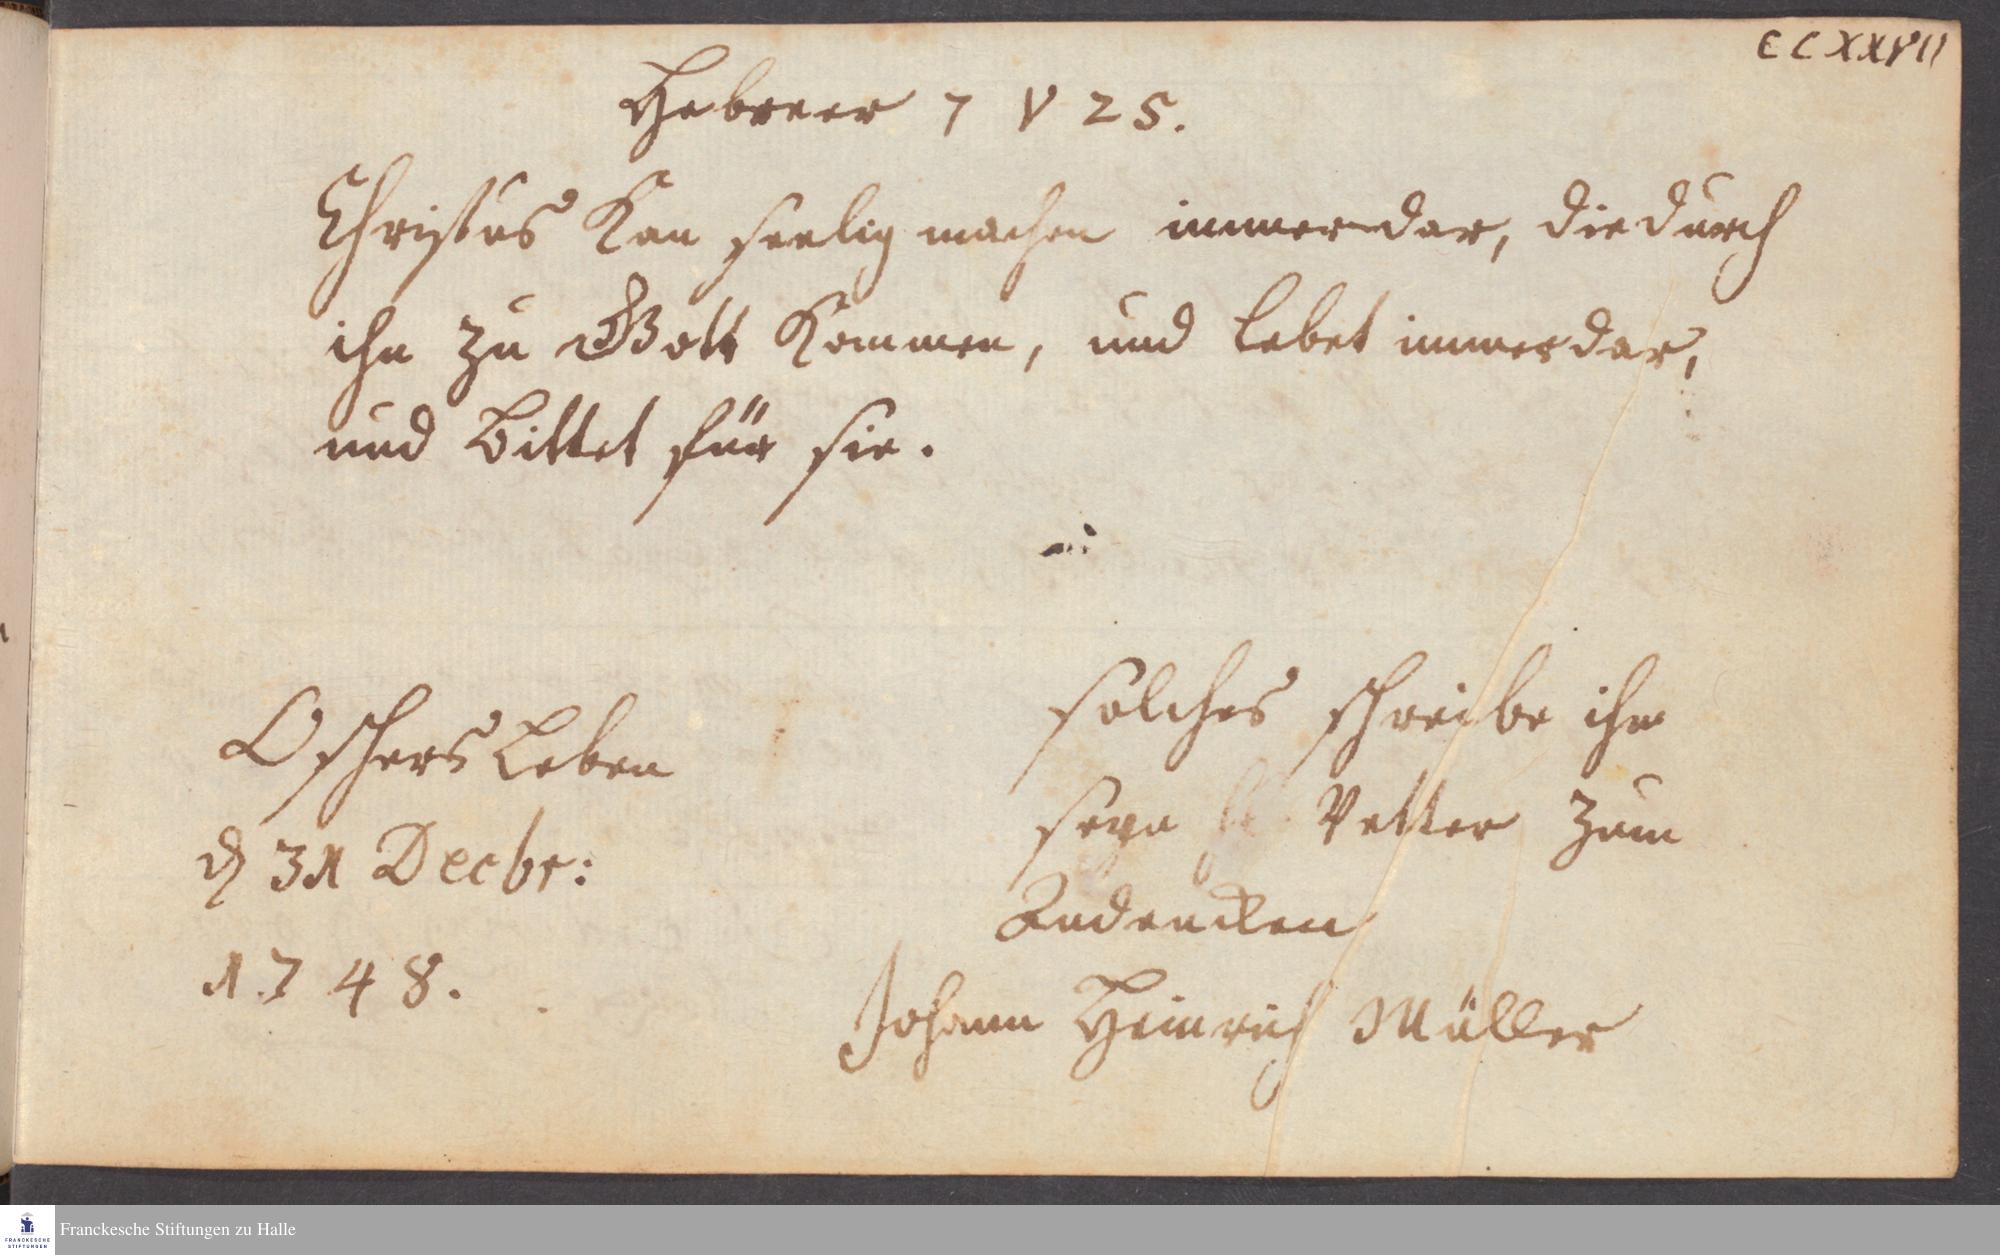 CCXXVII
Hebreer 7 V 25.
Christus Kan seelig machen immerdar, die durch
ihn zu Gott Kommen, und lebet immerdar,
und bittet für sie.
solches schreibe ihm
seyn Vetter zum
Andencken
Johann Heinrich Müller
OschersLeben
d 31 Decbr:
1748.
Franckesche Stiftungen zu Halle
FRANCKESCHE
STIFTUNGEN